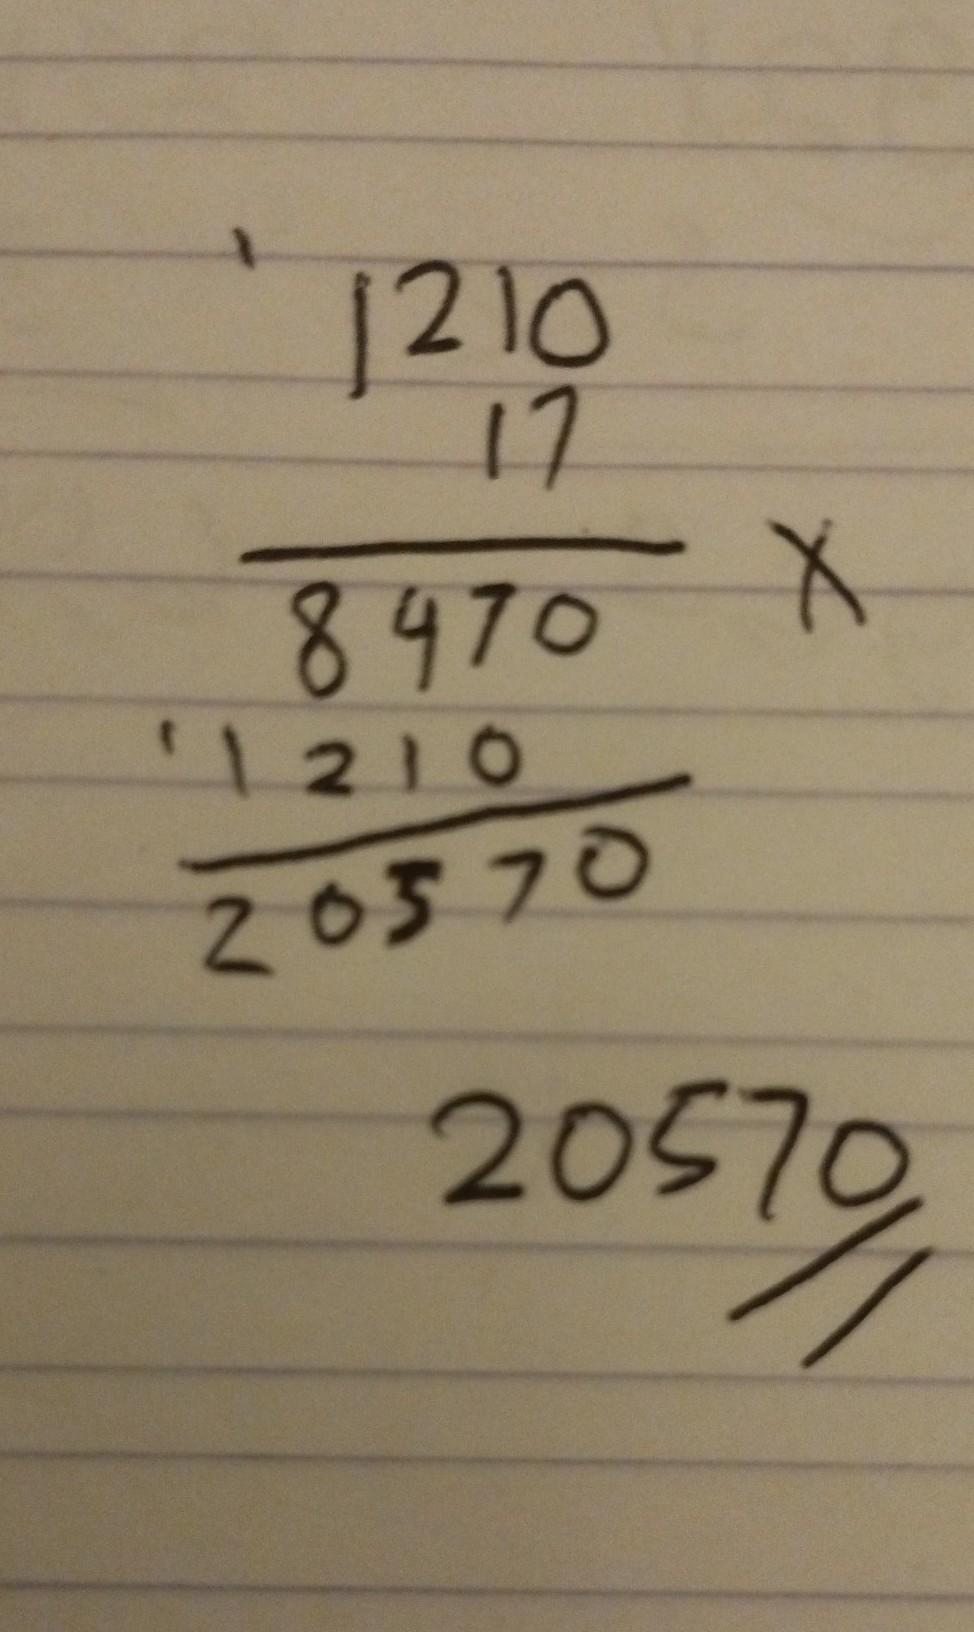 1
1210
17
X
8470
1 1210
20570
20570